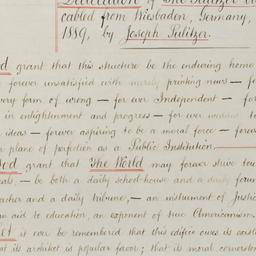 cabled from Wiesbaden, Germany,
1889, by Joseph Pulitzer.
grant that this structure be the enduring home
forever unsatisfied with merely printing news — fo
very form of wrong — forever Independent — for
in enlightenment and progress — forever wedded to
ideas — forever aspiring to be a moral force — forev
plane of perfection as a Public Institution.
grant that The World may forever strive tow
als, — be both a daily school-house and a daily forum
acher and a daily tribune, — an instrument of Justic
an aid to education, an exponent of true Americanism.
it can be remembered that this edifice owes its exist
at its architect is popular favor; that its moral corneston